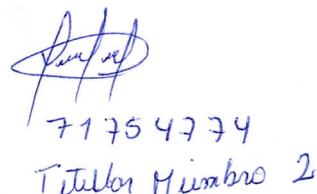 71754774
Titular Miembro 2